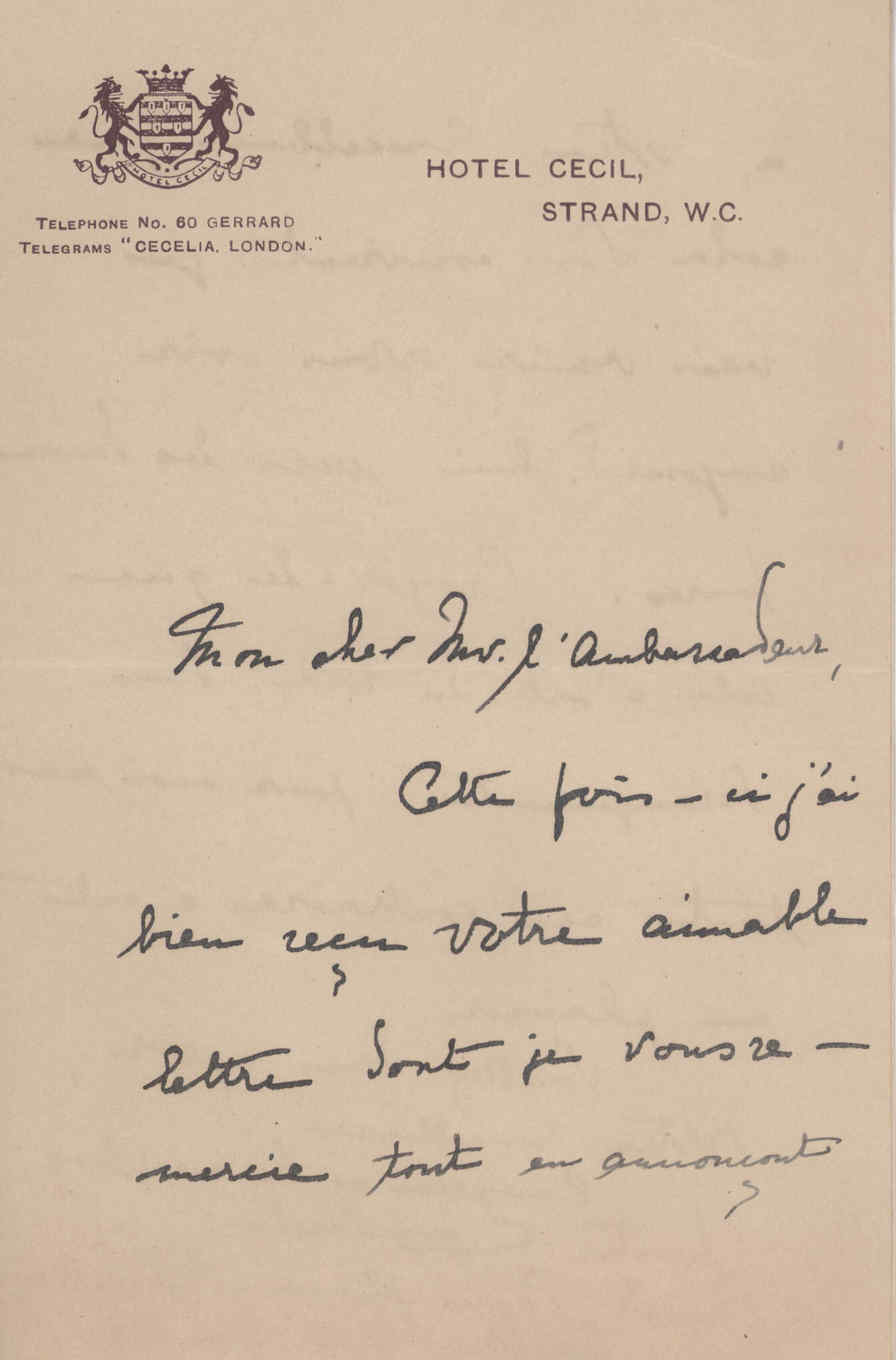 HOTEL CECIL
HOTEL CECIL,
STRAND, W.C.
TELEPHONE NO. 60 GERRARD
TELEGRAMS "CECELIA, LONDON."
Mon cher Mr. l'Ambassadeur,
Cette fois-ci j'ai
bien reçu votre aimable
lettre dont je vous re-
mercie tout en annonçant